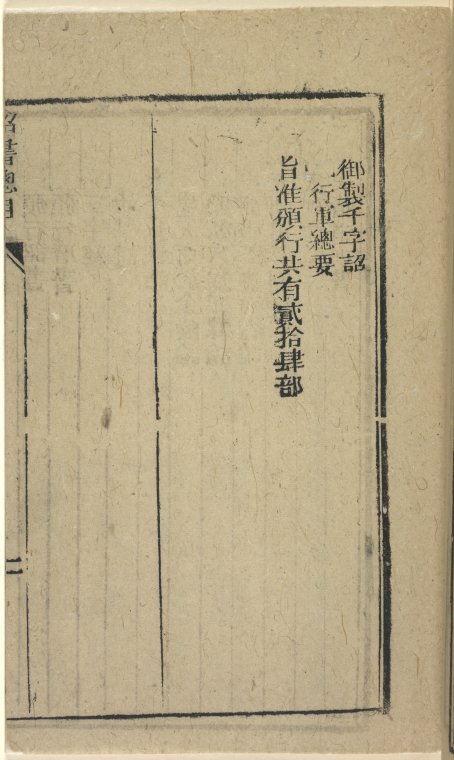 御製千字詔
行軍總要
旨准頒行共有貳拾肆部
詔書總目
二